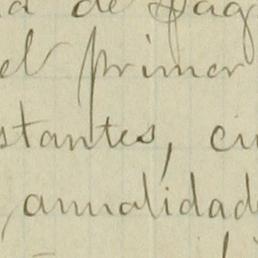 de pag
el primer
stantes, cu
, anualidad